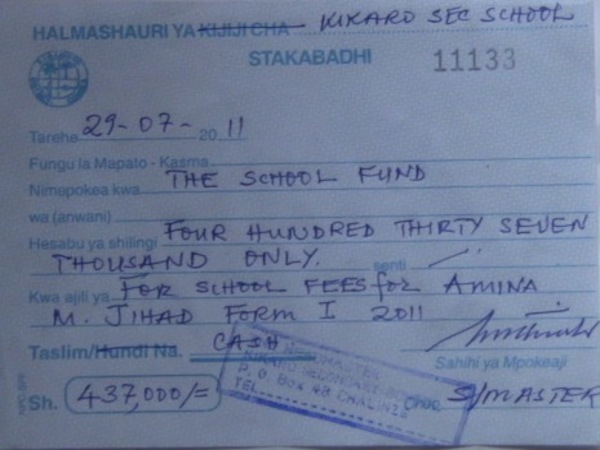 HALMASHAURI YA KIJIJI CHA KIKARO SEC SCHOOL
STAKABADHI 11133
Tarehe 29-07- 2011
Fungu la Mapato - Kasma
Nimepokea kwa THE SCHOOL FUND
wa (anwani)
Hesabu ya shilingi FOUR HUNDRED THIRTY SEVEN
THOUSAND ONLY. senti
Kwa ajili ya FOR SCHOOL FEES for AMINA
M. JIHAD FORM I 2011
Taslim/Hundi Na. CASH
Sahihi ya Mpokeaji
HEADMASTER
KIKARO SECONDARY
P. O. Box 48 CHALINZE
TEL
Cheo S/MASTER
Sh. 437,000/=